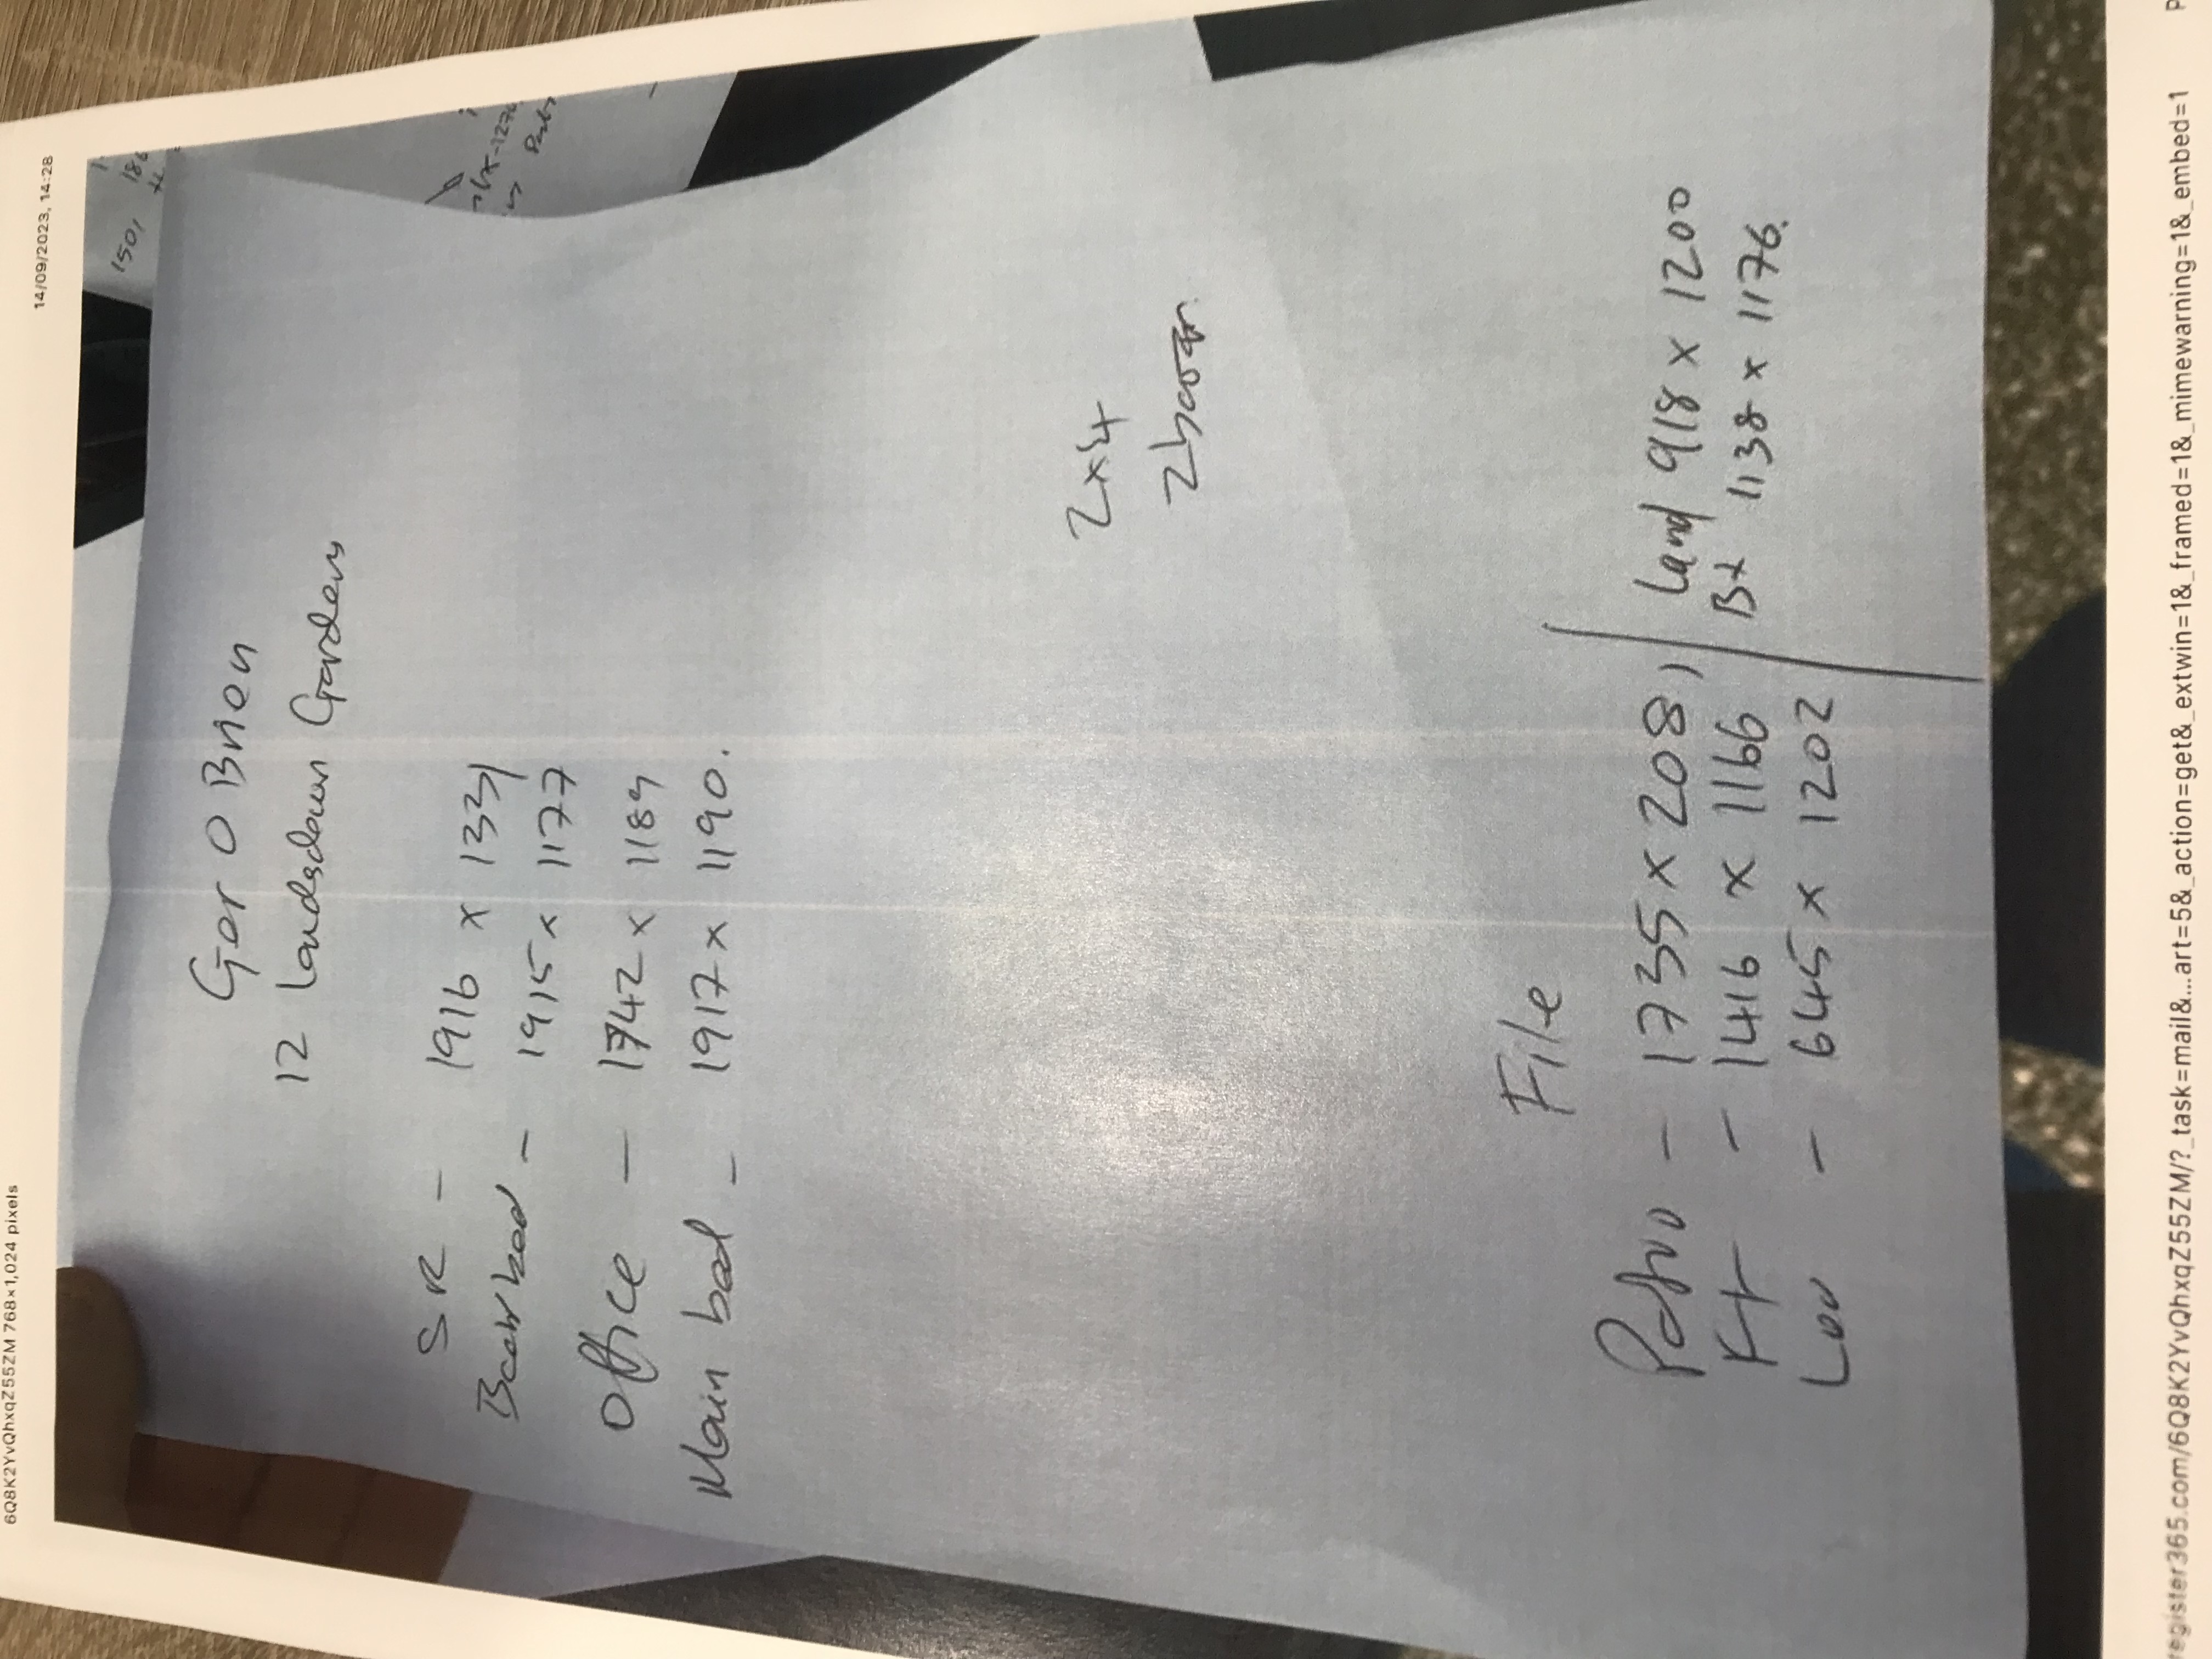 6Q8K2YvQhxqZ55ZM 768×1,024 pixels
14/09/2023, 14:28
1501
Ger O Brien
12 Landsdown Gardens
SR - 1916 x 1331
Back bed - 1915 x 1177
Office - 1742 x 1189
Main bed - 1917 x 1190.
2x4
File
Patio - 1735 x 2081
Kt - 1416 x 1166
Loo - 645 x 1202
Land 918 x 1200
Bt 1138 x 1176.
register365.com/6Q8K2YvQhxqZ55ZM/?_task=mail&...art=5&_action=get&_extwin=1&_framed=1&_mimewarning=1&_embed=1